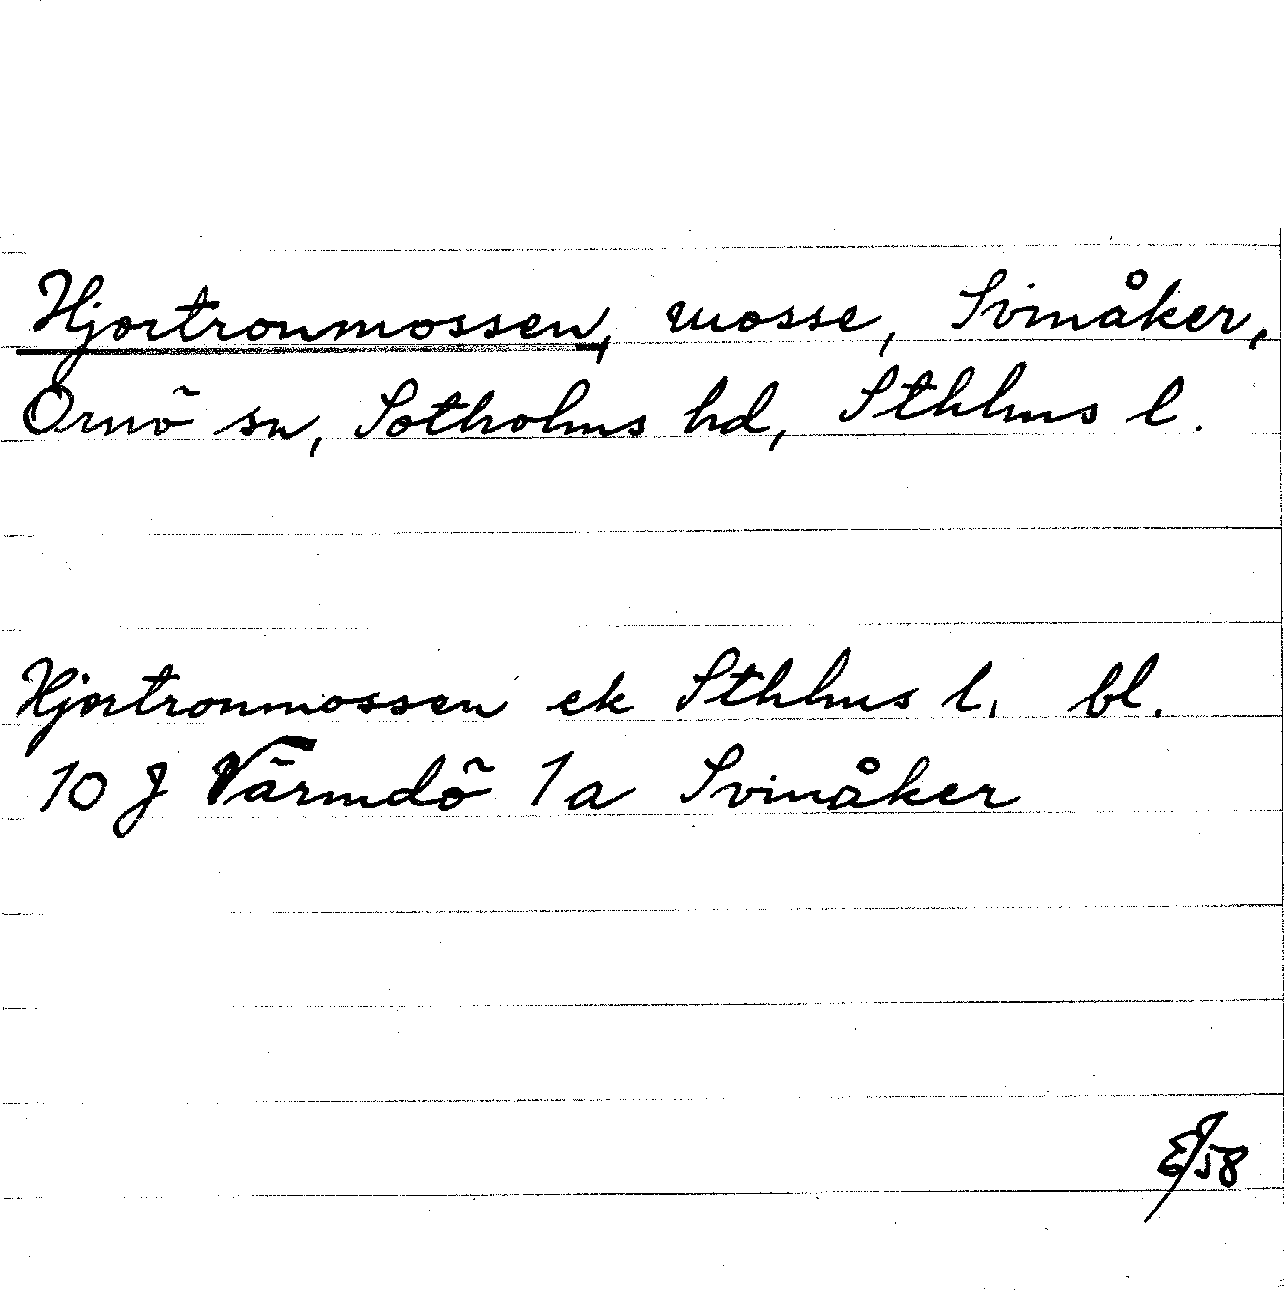 Hjortronmossen, mosse, Svinåker,
Ornö sn, Sotholms hd, Sthlms l.
Hjortronmossen ek Sthlms l. bl.
10 J Värmdö 1a Svinåker